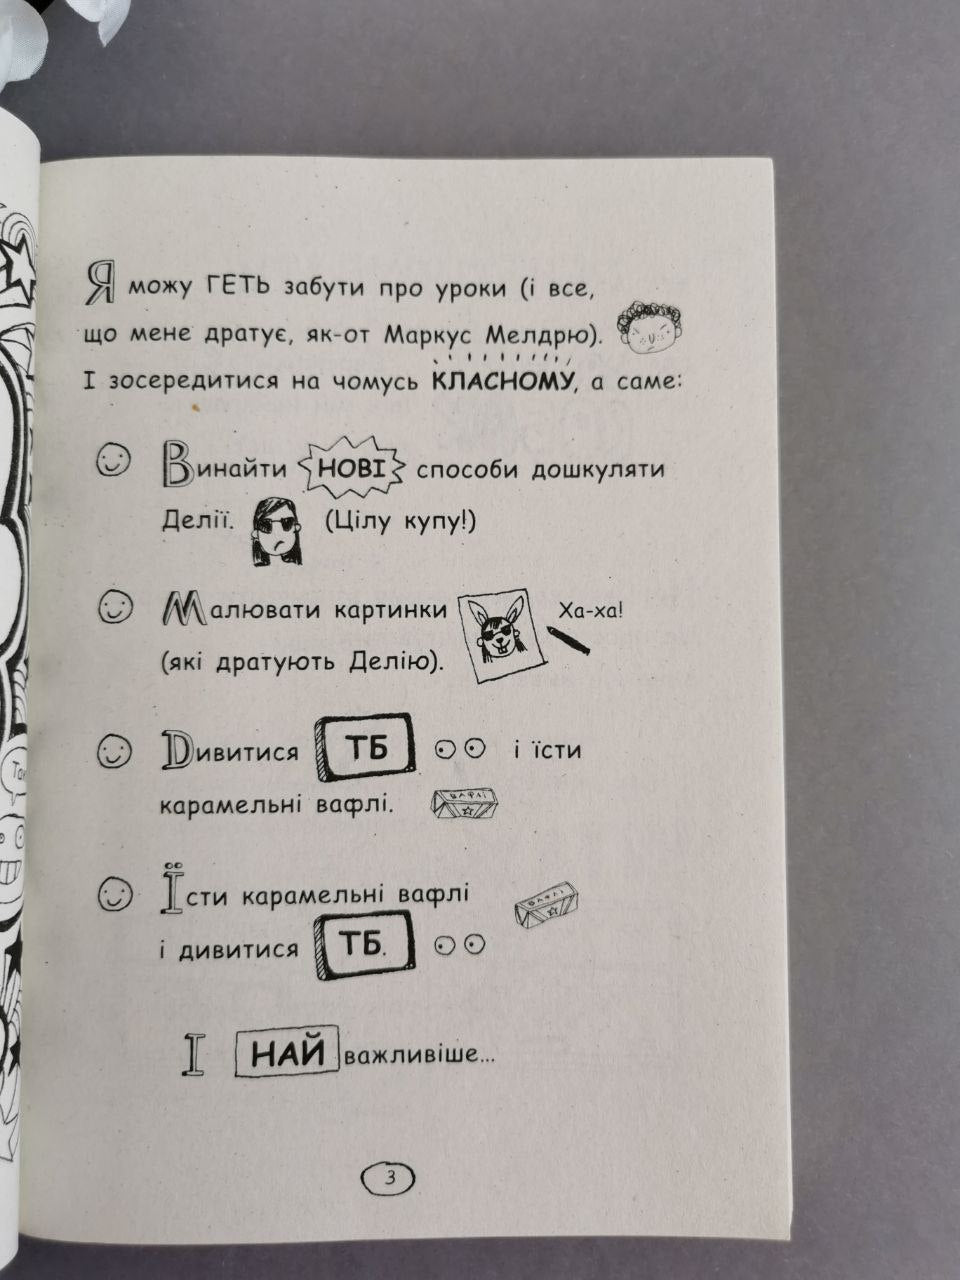 Я можу ГЕТЬ забути про уроки (і все,
що мене дратує, як-от Маркус Мелдрю).
І зосередитися на чомусь КЛАСНОМУ, а саме:
Винайти НОВІ способи дошкуляти
Делії. (Цілу купу!)
Малювати картинки Ха-ха!
(які дратують Делію).
Дивитися ТБ і їсти
карамельні вафлі. ВАФЛІ
Їсти карамельні вафлі ВАФЛІ
і дивитися ТБ.
І НАЙважливіше...
3